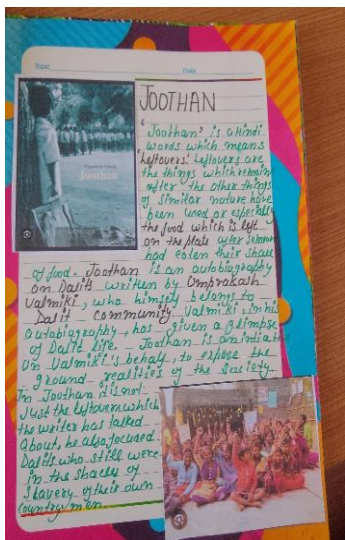 Topic
Date
JOOTHAN
Omprakash Valmiki
Joothan
'Joothan' is a Hindi
words which means
'Leftovers'. Leftovers are
the things which remain
after the other things
of similar nature have
been used or especially
the food which is left
on the plate after someone
had eaten their share
of food. Joothan is an autobiography
on Dalits written by Omprakash
Valmiki, who himself belongs to
Dalit community Valmiki, in his
autobiography, has given a glimpse
of Dalit life. Joothan is an
On Valmiki's behalf, to expose the
ground realities of the society
In Joothan it is not
Just the leftovers which
the writer has talked
About, he also focused
Dalits who still were
in the shacles of
Slavery of their own
Country men.